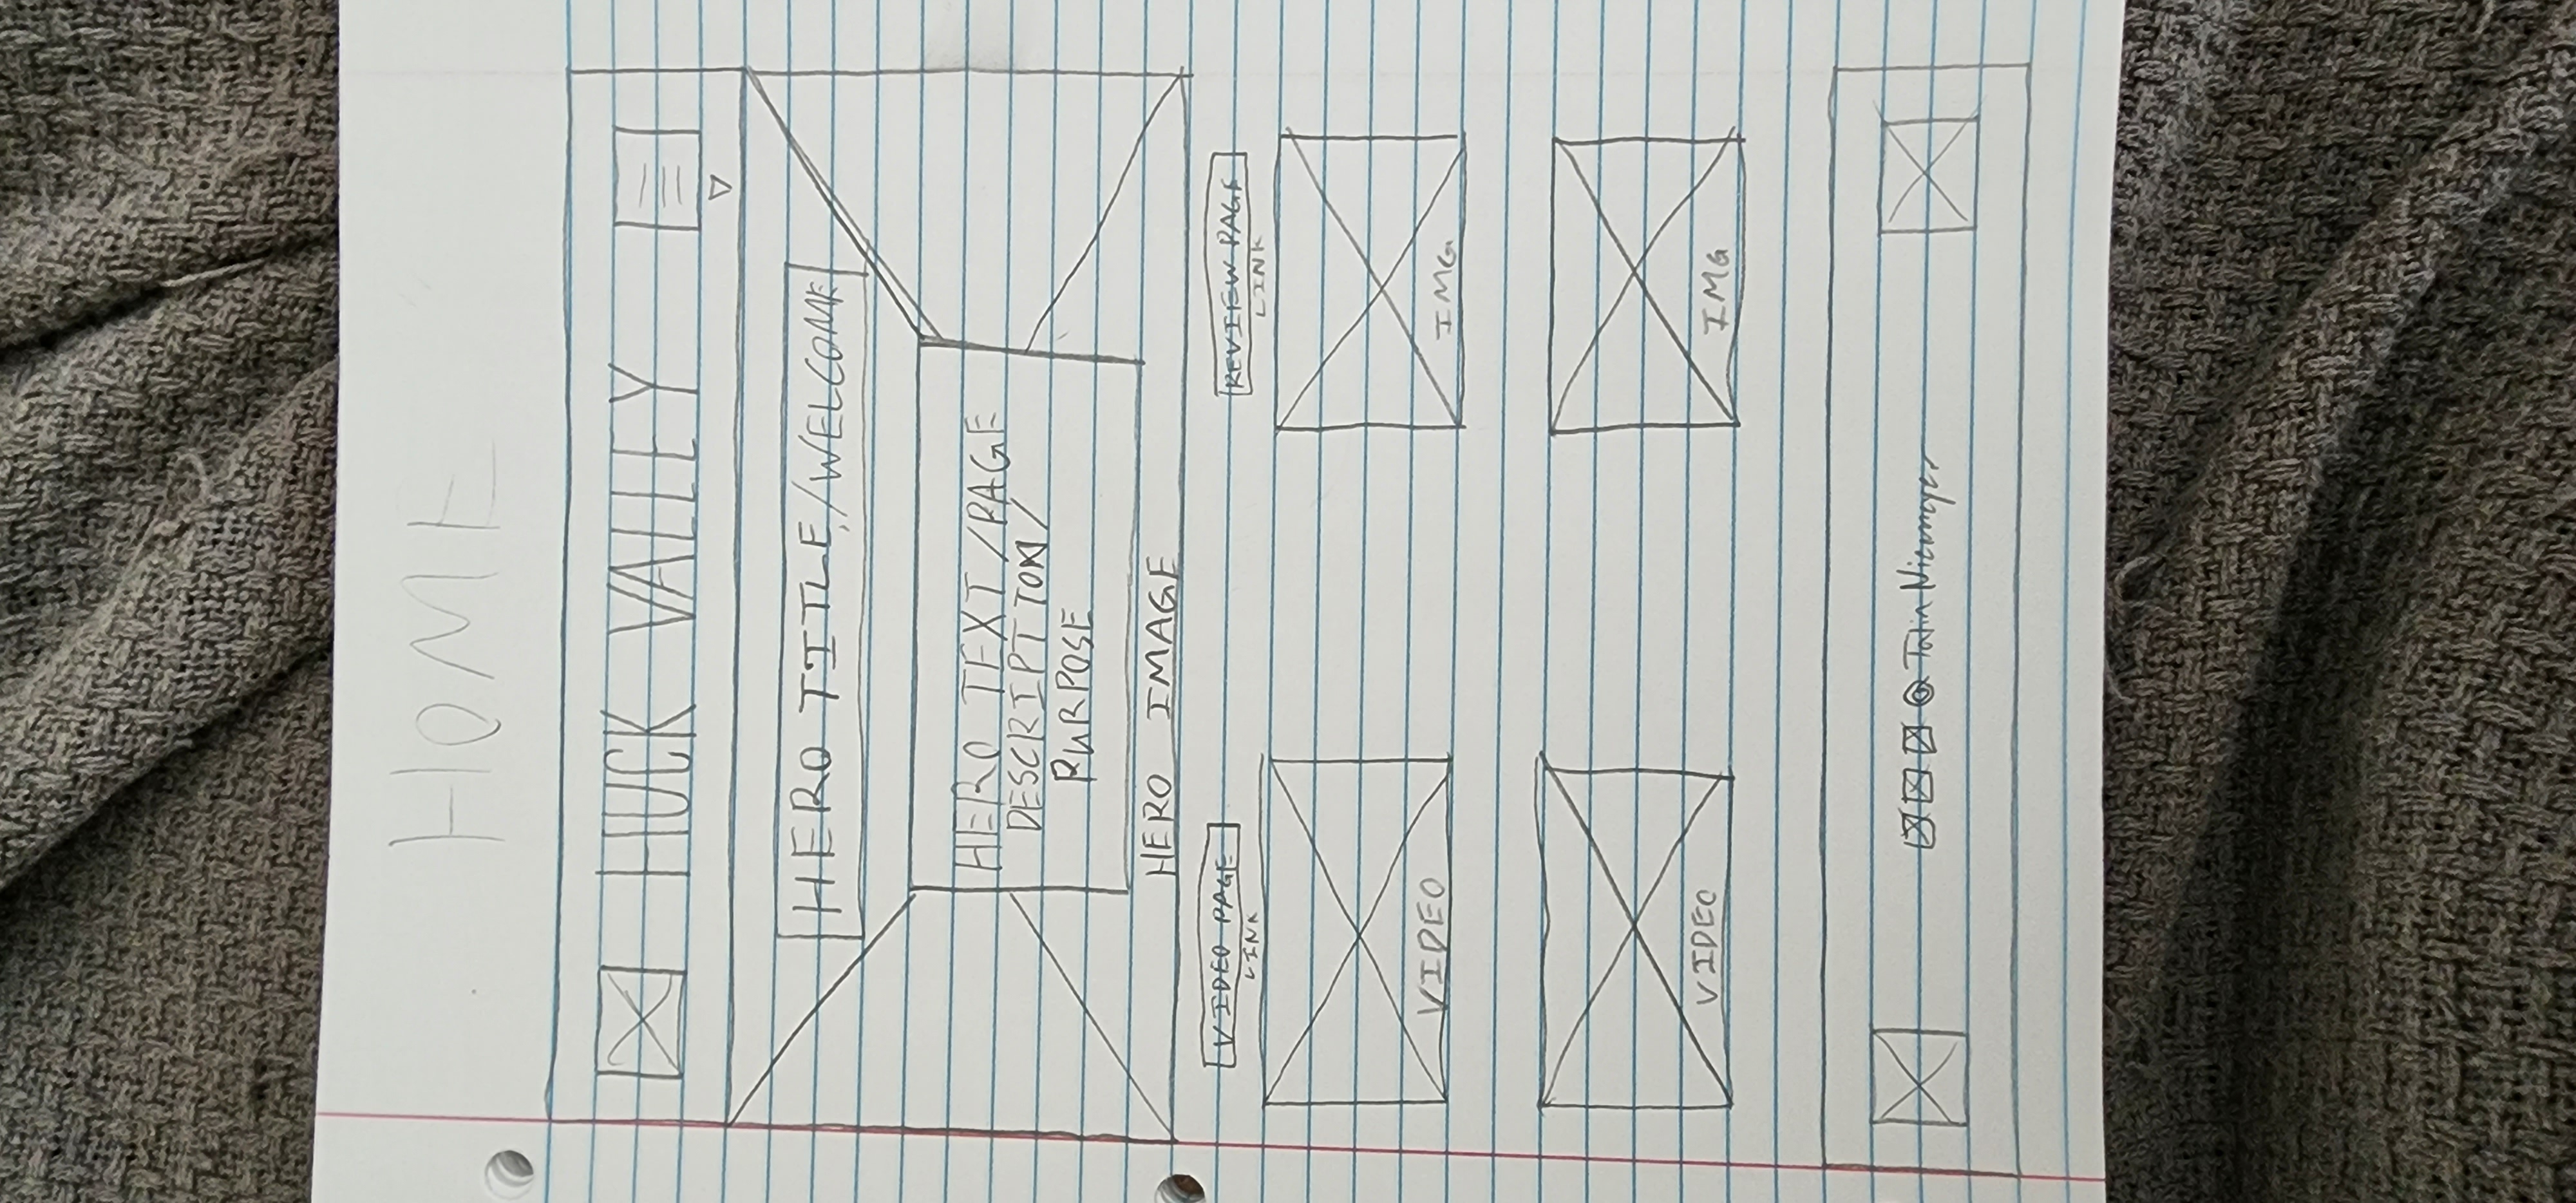 HOME
HUCK VALLEY
HERO TITLE/WELCOME
HERO TEXT/PAGE
DESCRIPTION/
PURPOSE
HERO IMAGE
VIDEO PAGE
LINK
REVIEW PAGE
LINK
VIDEO
IMG
VIDEO
IMG
Niemeyer